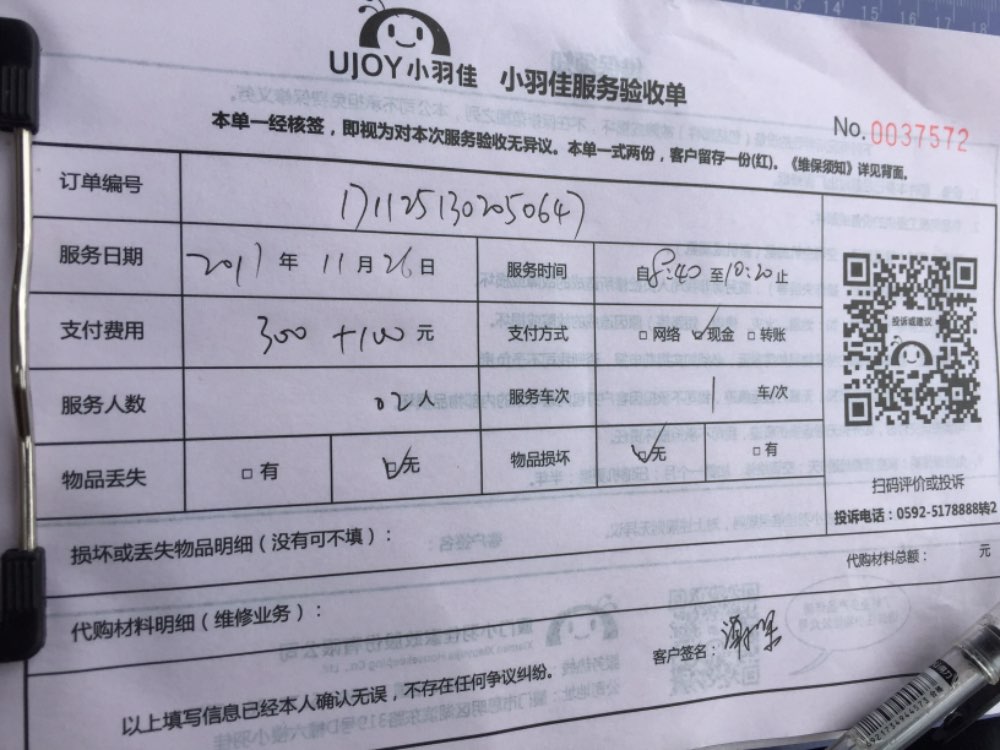 UJOY小羽佳 小羽佳服务验收单
No. 0037572
本单一经核签，即视为对本次服务验收无异议。本单一式两份，客户留存一份(红)。《维保须知》详见背面。
订单编号 1711251302050647
服务日期 2017年 11月26日 服务时间 自8:40至10:20止
支付费用 300+100元 支付方式 □网络 ☑现金 □转账
投诉或建议
服务人数 02人 服务车次 1 车/次
物品丢失 □有 ☑无 物品损坏 ☑无 □有
扫码评价或投诉
投诉电话：0592-5178888转2
损坏或丢失物品明细（没有可不填）：
代购材料总额： 元
代购材料明细（维修业务）：
客户签名：
以上填写信息已经本人确认无误，不存在任何争议纠纷。